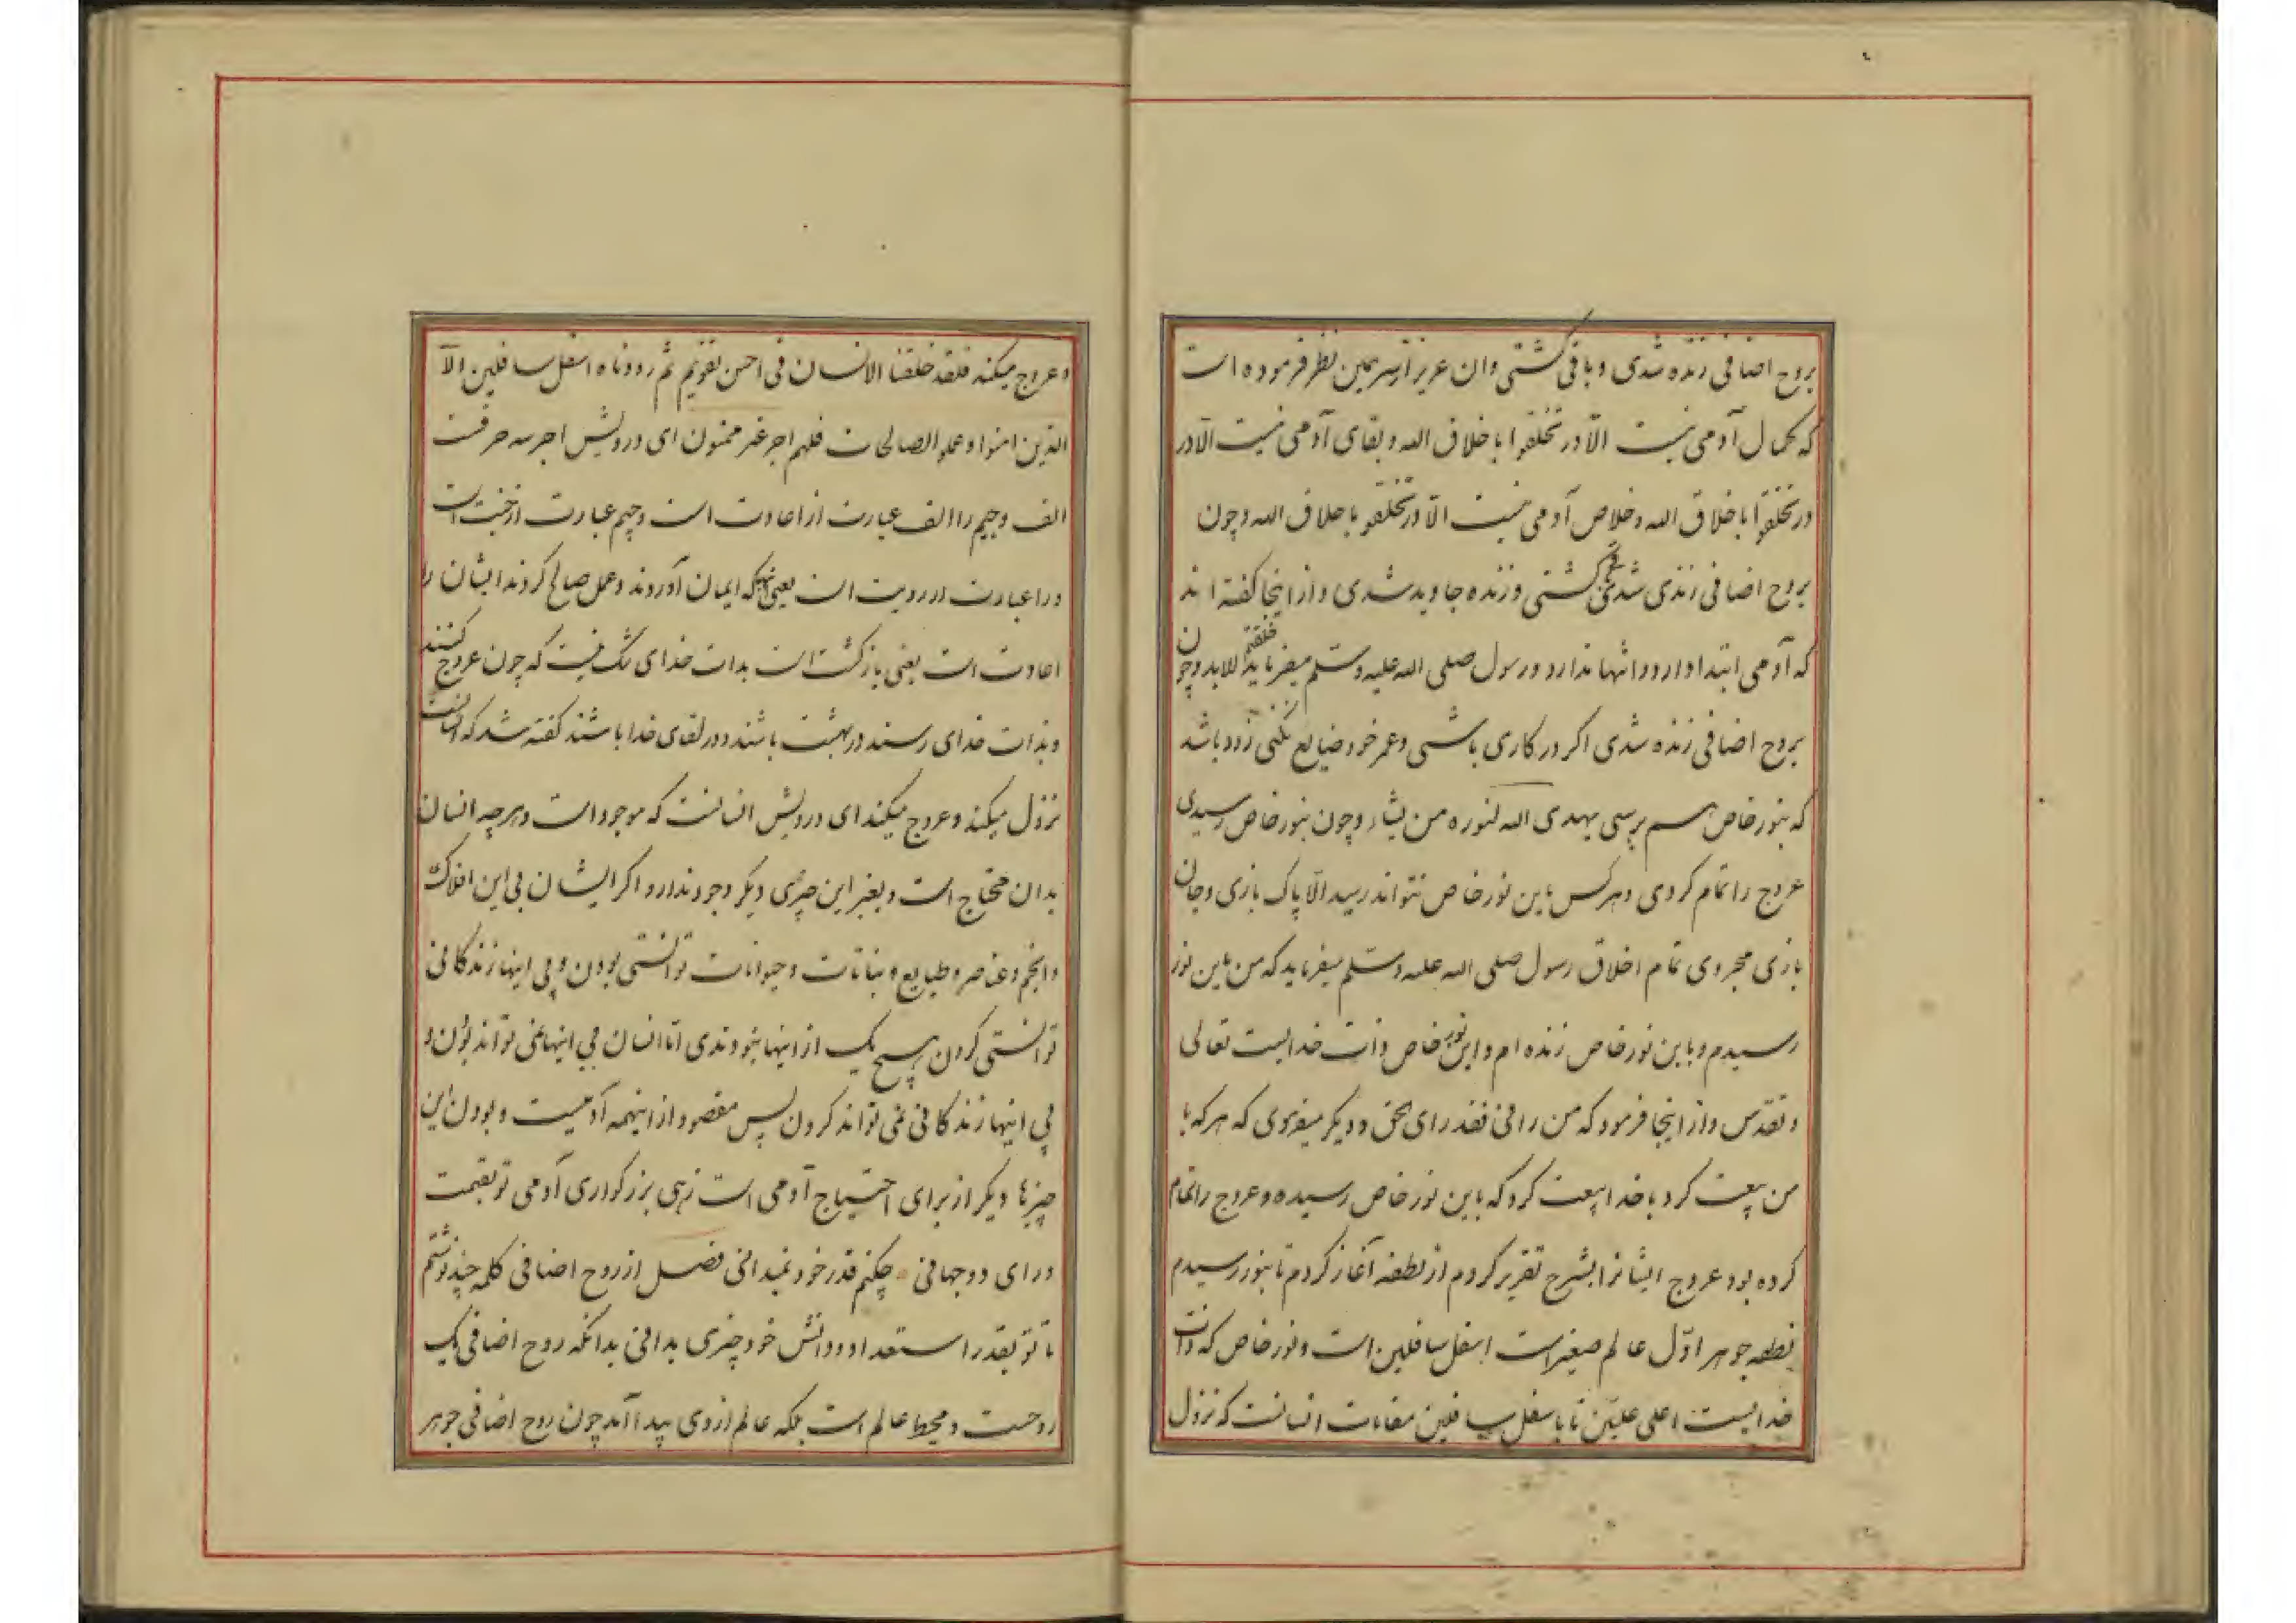 بروح اضافی زنده شدی و باقی گشتی وان عزیز ازسر همین نظر فرموده است
که کمال آدمی نیست الّا در تخلقوا باخلاق الله و بقای آدمی نیست الّا در
در تخلقوا باخلاق الله و خلاص آدمی نیست الّا در تخلقو باخلاق الله و چون
بروح اضافی زندی شدی گشتی و زنده جاوید شدی و از اینجا گفته اند
که آدمی ابتدا دارد و انتها ندارد و رسول صلی الله علیه وسلّم میفرماید خلقتم للابد و چون
بروح اضافی زنده شدی اکر در کاری باشی و عمر خود ضایع نکنی زود باشد
که بنور خاص هم برسی یهدی الله لنوره من یشاء و چون بنور خاص رسیدی
عروج را تمام کردی و هرکس باین نور خاص نتواند رسید الّا پاک بازی و جان
بازی مجردی تمام اخلاق رسول صلی الله علیه وسلّم میفرماید که من باین نور
رسیدم و باین نور خاص زنده ام و این نور خاص ذات خدایست تعالی
و تقدّس و از اینجا فرمود که من رانی فقد رای الحق و دیگر میفرمودی که هرکه با
من بیعت کرد با خدا بیعت کرد که باین نور خاص رسیده و عروج را تمام
کرده بود عروج ایشانرا بشرح تقریر کردم از نطفه آغاز کردم تا بنور رسیدم
نطفه جوهر اوّل عالم صغیر است اسفل سافلین است و نور خاص که ذات
خدایست اعلی علیّین تا باسفل سافلین مقامات انسانست که نزول
و عروج میکند فلقد خلقنا الانسان فی احسن تقویم ثم رددناه اسفل سافلین الّا
الذین امنوا و عملو الصالحات فلهم اجر غیر ممنون ای درویش اجر سه حرفست
الف و جیم و را الف عبارت از اعادت است و جیم عبارت از جنت است
و را عبارت از رویت است یعنی آنها که ایمان آوردند و عمل صالح کردند ایشان را
اعادت است یعنی بازگشت است بذات خدای شک نیست که چون عروج کنند
و بذات خدای رسند در بهشت باشند و در لقای خدا باشند گفته شد که انسانست
نزول میکند و عروج میکند ای درویش انسانست که موجود است و هرچه انسان
بدان محتاج است و بغیر این چیزی دیگر وجود ندارد و اکر ایشان بی این افلاک
و انجم و عناصر و طبایع و نباتات و حیوانات توانستی بودن و بی اینها زندکانی
توانستی کردن هیچ یک از اینها نبودندی امّا انسان بی اینها نمی تواند بودن و
بی اینها زندکانی نمی تواند کردن پس مقصود از اینهمه آدمیست و بودن این
چیزها دیگر از برای احتیاج آدمی است زهی بزرگواری آدمی تو بقیمت
ورای دو جهانی چکنم قدر خود نمیدانی فصل از روح اضافی کلمه چند نوشتم
تا تو بقدر استعداد و دانش خود چیزی بدانی بدانکه روح اضافی یک
روحست و محیط عالم است بلکه عالم از وی پیدا آمد چون روح اضافی جوهر